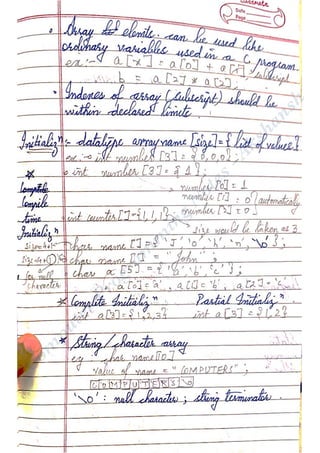 Date
Page
• Array elemts. can be used like
ordinary variables used in a C program.
ex:- a[x] = a[0] + a[x] subscript
b = a[2] * a[2].
• Indexes of array (subscript) should be
within declared limits
Initializn :- datatype arrayname [size] = { list of values }
ex:- int number [3] = {0,0,0};
* int number [3] = {1};
Compile number [0] = 1
time number [1] = 0 automatically
Initializn number [2] = 0
int counter [] = {1,1,1};
size would be taken as 3
char name [] = {'J','o','h','n','\0'};
char name [] = "John";
for null char a [5] = {'a','b','c'};
character a[0]='a', a[1]='b', a[2]=
* Complete Initializn Partial Initializn
int a[3] = {1,2,3} int a[3] = {1,2}
* String/character array
eg char name[0]
value of name = "COMPUTERS";
C O M P U T E R S \0
'\0' : null character ; string terminator.